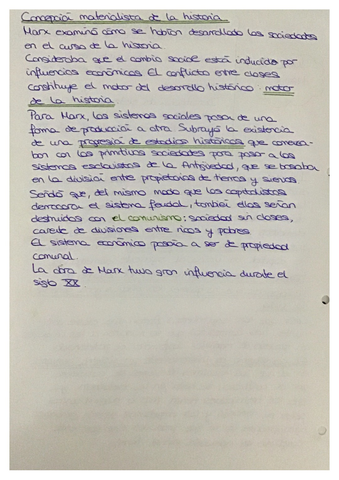 Concepción materialista de la historia
Marx examinó cómo se habían desarrollado las sociedades
en el curso de la historia.
Consideraba que el cambio social está inducido por
influencias económicas El conflicto entre clases
constituye el motor del desarrollo histórico. motor
de la historia
Para Marx, los sistemas sociales pasan de una
forma de producción a otra Subrayó la existencia
de una progresión de estadios históricos que comenza-
ban con las primitivas sociedades para pasar a los
sistemas esclavistas de la Antigüedad, que se basaba
en la división entre propietarios de tierras y siervos.
Señaló que, del mismo modo que los capitalistas
derrocaron el sistema feudal, también ellos serían
destruidos con el comunismo: sociedad sin clases,
carente de divisiones entre ricos y pobres
El sistema económico pasaría a ser de propiedad
comunal
La obra de Marx tuvo gran influencia durante el
siglo XX